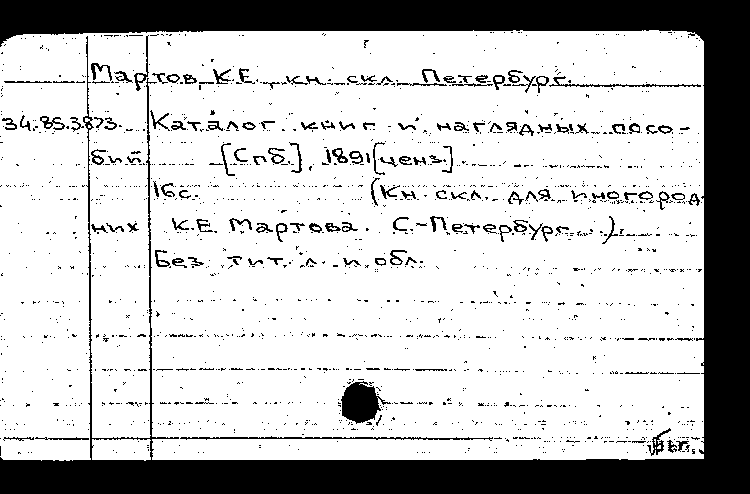 Мартов, К.Е., кн. скл. Петербург.
34.85.3873. Каталог книг и наглядных посо-
бий [Спб.], 1891[ценз.].
16с. (Кн. скл. для иногород-
них К.Е. Мартова. С.-Петербург...).
Без тит. л. и обл.